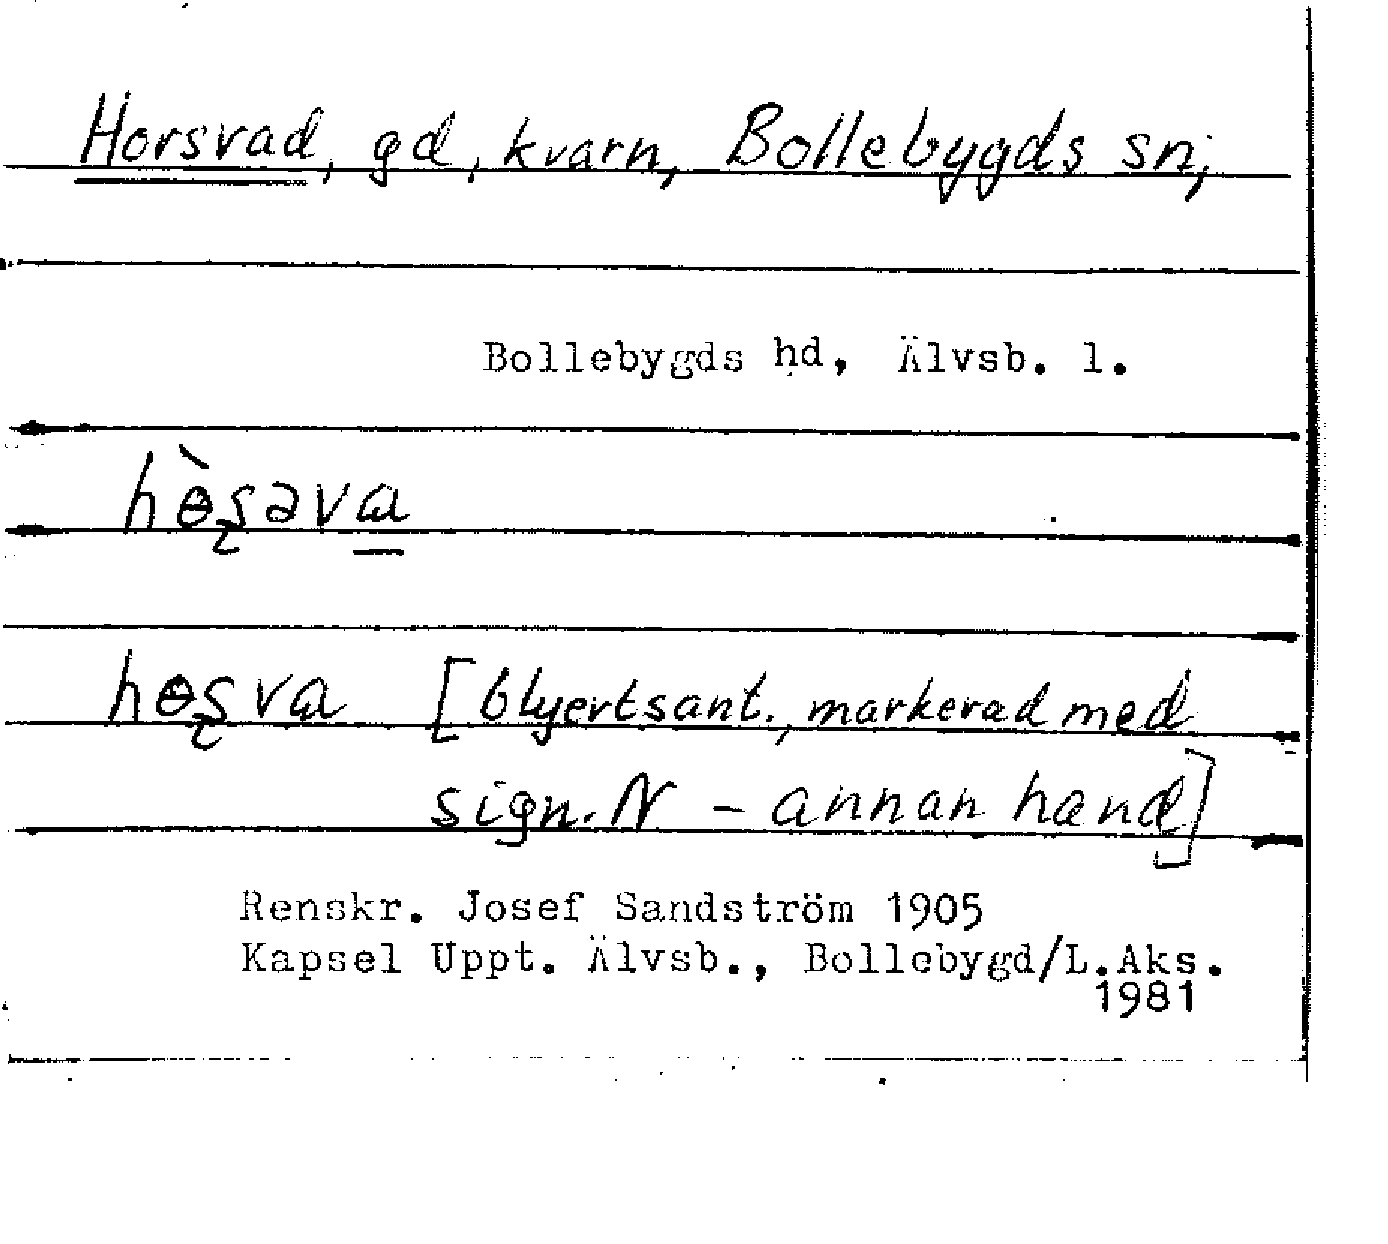 Horsvad, gd, kvarn, Bollebygds sn,
Bollebygds hd, Älvsb. l.
hɵ̀ʂəva
hɵʂva [blyertsant., markerad med
sign. N – annan hand]
Renskr. Josef Sandström 1905
Kapsel Uppt. Älvsb., Bollebygd/L.Aks.
1981